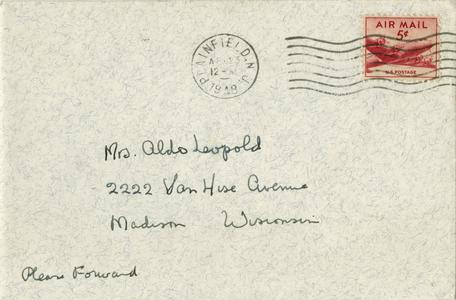 AIR MAIL
5¢
U.S. POSTAGE
PLAINFIELD, N.J.
12
1948
Mrs. Aldo Leopold
2222 Van Hise Avenue
Madison Wisconsin
Please Forward